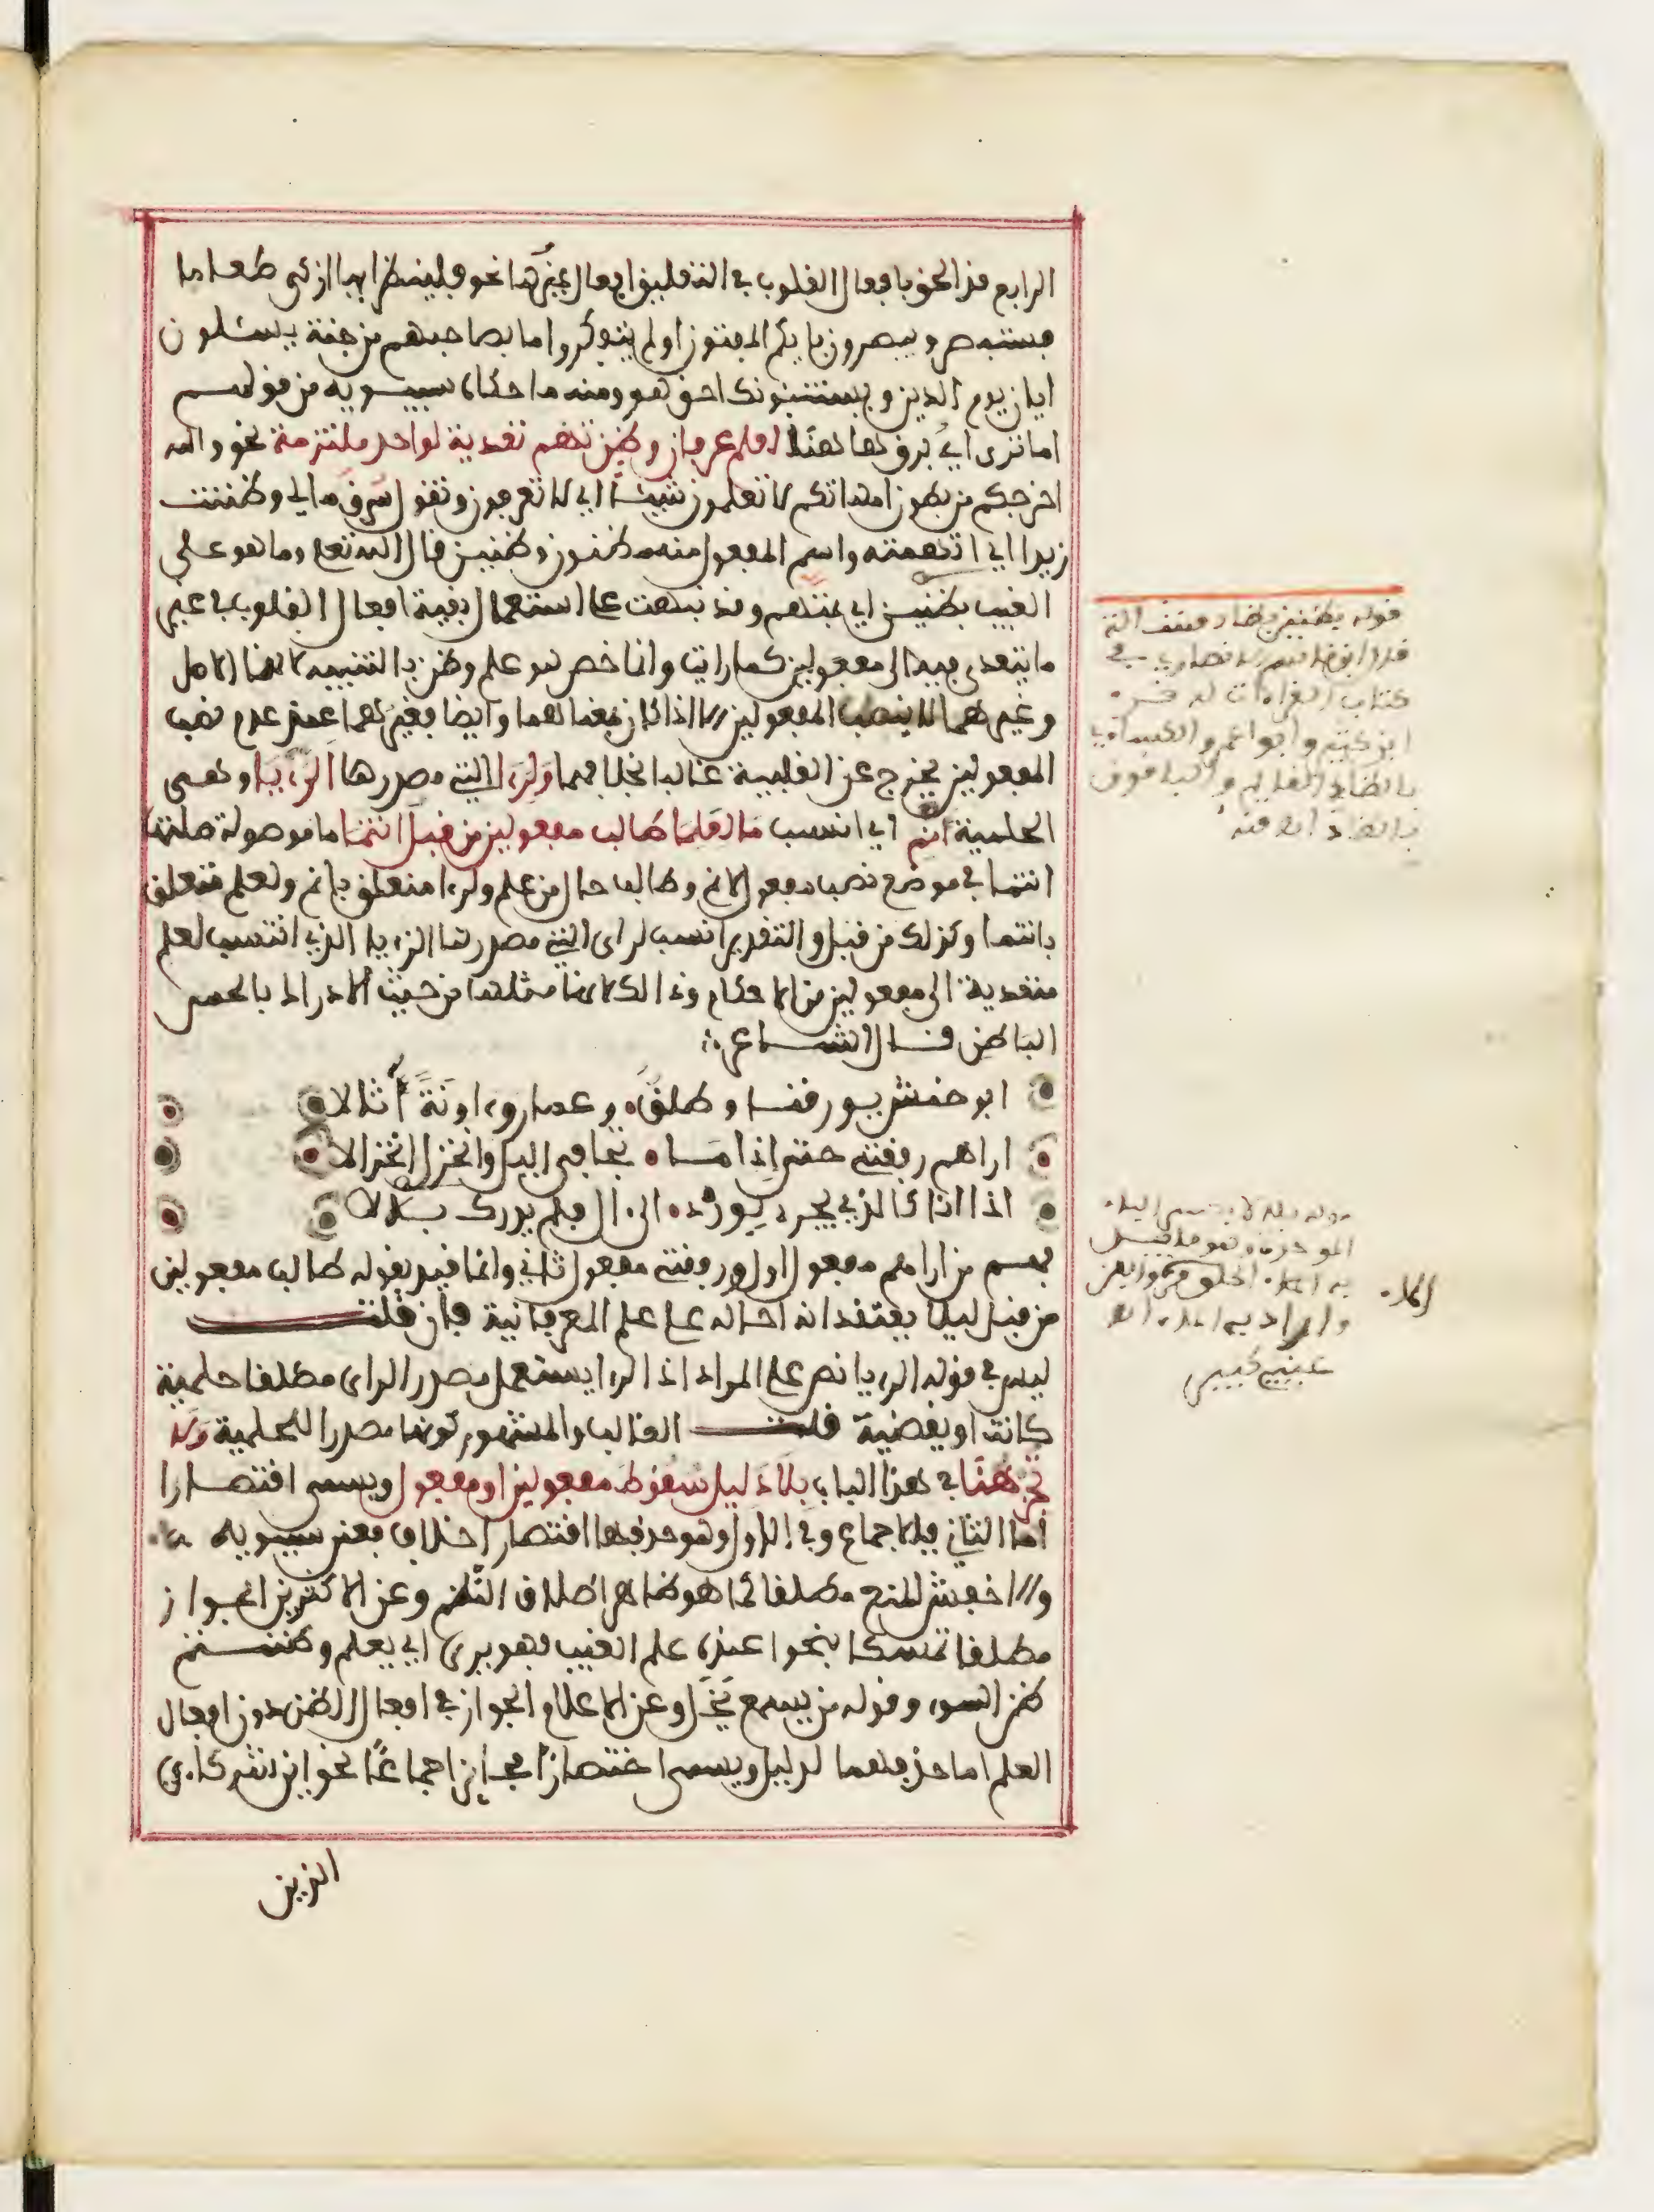 الرابع قد الحق بافعال القلوب في التعليق افعال غيرها نحو فلينظر ايها ازكى طعاما
فستبصر ويبصرون باييكم المفتون اولم يتفكروا ما بصاحبهم من جنة يسئلون
ايان يوم الدين ويستنبئونك احق هو ومنه ما حكاه سيبويه من قولهم
اما ترى اي برق هاهنا لعلم عرفان وظن تهمه تعدية لواحد ملتزمة نحو والله
اخرجكم من بطون امهاتكم لا تعلمون شيئا اي لا تعرفون وتقول سرق مالي وظننت
زيدا اي اتهمته واسم المفعول منه مظنون وظنين قال الله تعلى وما هو على
الغيب بظنين اي بمتهم وقد نبهت على استعمال بقية افعال القلوب في غير
ما يتعدى فيه الى مفعولين كما رايت وانما خص هو علم وظن بالتنبيه لانهما الاصل
وغيرهما لا ينصب المفعولين الا اذا كان بمعناهما وايضا فغيرهما عند عدم نصب
المفعولين يخرج عن القلبية غالبا بخلافهما ولرءا التي مصدرها الرءيا وهي
الحلمية انم اي انسب ما لعلما طالب مفعولين من قبل انتما ما موصولة صلتها
انتما في موضع نصب مفعول لانم وطالب حال من علم ولرءا متعلق بانم ولعلم متعلق
بانتما وكذلك من قبل والتقدير انسب لراى التي مصدرها الرءيا الذي انتسب لعلم
متعدية الى مفعولين من الاحكام وذالك لانها مثلها من حيث الادراك بالحس
الباطن قال الشاعر
ابو حنش يورقنا وطلق وعمار وءاونة أثالا
اراهم رفقتي حتى إذا ما تجافى اليل وانخزل انخزالا
اذا انا كالذي يجرى لورد الى ءال فلم يدرك بلالا
فهم من اراهم مفعول اول ورفقتي مفعول ثاني وانما قيد بقوله طالب مفعولين
من قبل ليلا يعتقد انه احاله على علم العرفانية فان قلت
ليس في قوله الرءيا نص على المراد اذ الرءيا يستعمل مصدر الراى مطلقا حلمية
كانت او يقضية قلت الغالب والمشهور كونها مصدرا للحلمية ولا
تجز هنا في هذا الباب بلا دليل سقوط مفعولين او مفعول ويسمى اقتصارا
أما الثاني فبالاجماع وفي الاول وهو حذفهما اقتصارا خلاف فعن سيبويه
والاخفش المنع مطلقا كما هو ظاهر اطلاق النظم وعن الاكثرين الجواز
مطلقا تمسكا بنحو اعنده علم الغيب فهو يرى اي يعلم وظننتم
ظن السوء وقوله من يسمع يخل وعن الاعلام الجواز في افعال الظن دون افعال
العلم اما حذفهما لدليل ويسمى اختصارا فجايز اجماعا نحو اين شركاءي
الذين
قوله بظنين بضاد
كتاب القراءات له
ابن كثير وابو عمرو والكسائي